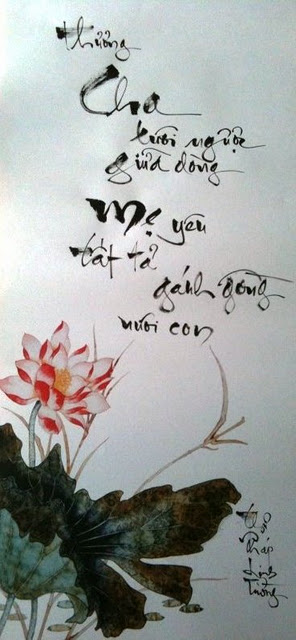 thương
Cha
xuôi ngược
giữa dòng
Mẹ yêu
tất tả
gánh gồng
nuôi con
Pháp
Tường